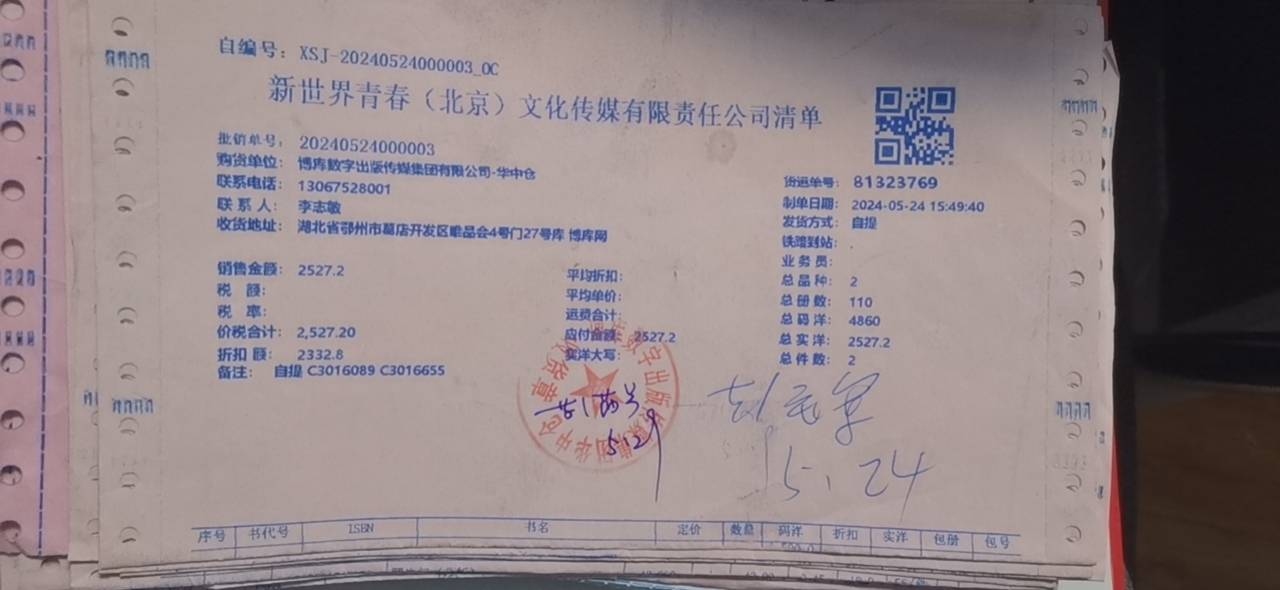 自编号：XSJ-20240524000003_0C
新世界青春（北京）文化传媒有限责任公司清单
批销单号：20240524000003
购货单位：博库数字出版传媒集团有限公司-华中仓
联系电话：13067528001
联系人：李志敏
收货地址：湖北省鄂州市葛店开发区唯品会4号门27号库 博库网
货运单号：81323769
制单日期：2024-05-24 15:49:40
发货方式：自提
铁路到站：.
业务员：
总品种：2
总册数：110
总码洋：4860
总实洋：2527.2
总件数：2
销售金额：2527.2
税 额：
税 率：
价税合计：2,527.20
折扣额：2332.8
备注：自提 C3016089 C3016655
平均折扣：
平均单价：
运费合计：
应付金额：2527.2
实洋大写：
5.29
5.24
序号 书代号 ISBN 书名 定价 数量 码洋 折扣 实洋 包册 包号